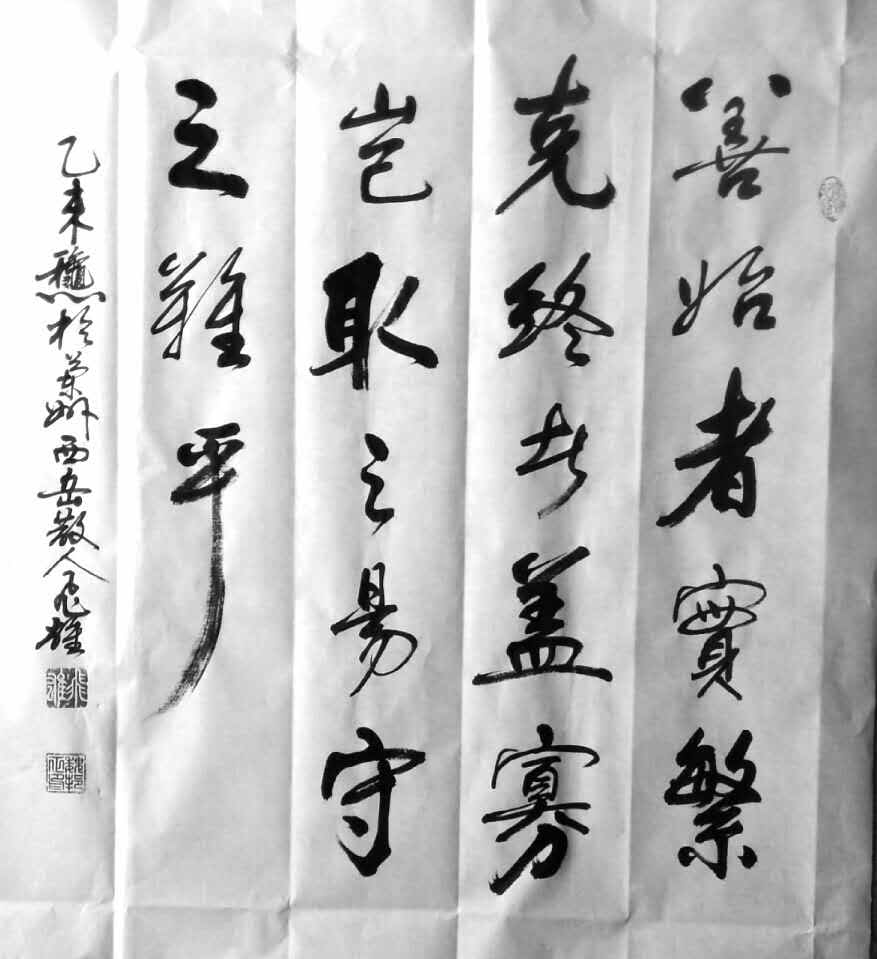 善始者實繁
克終者盖寡
豈取之易守
之難乎
乙未龝於蘭州西岳散人飛雄